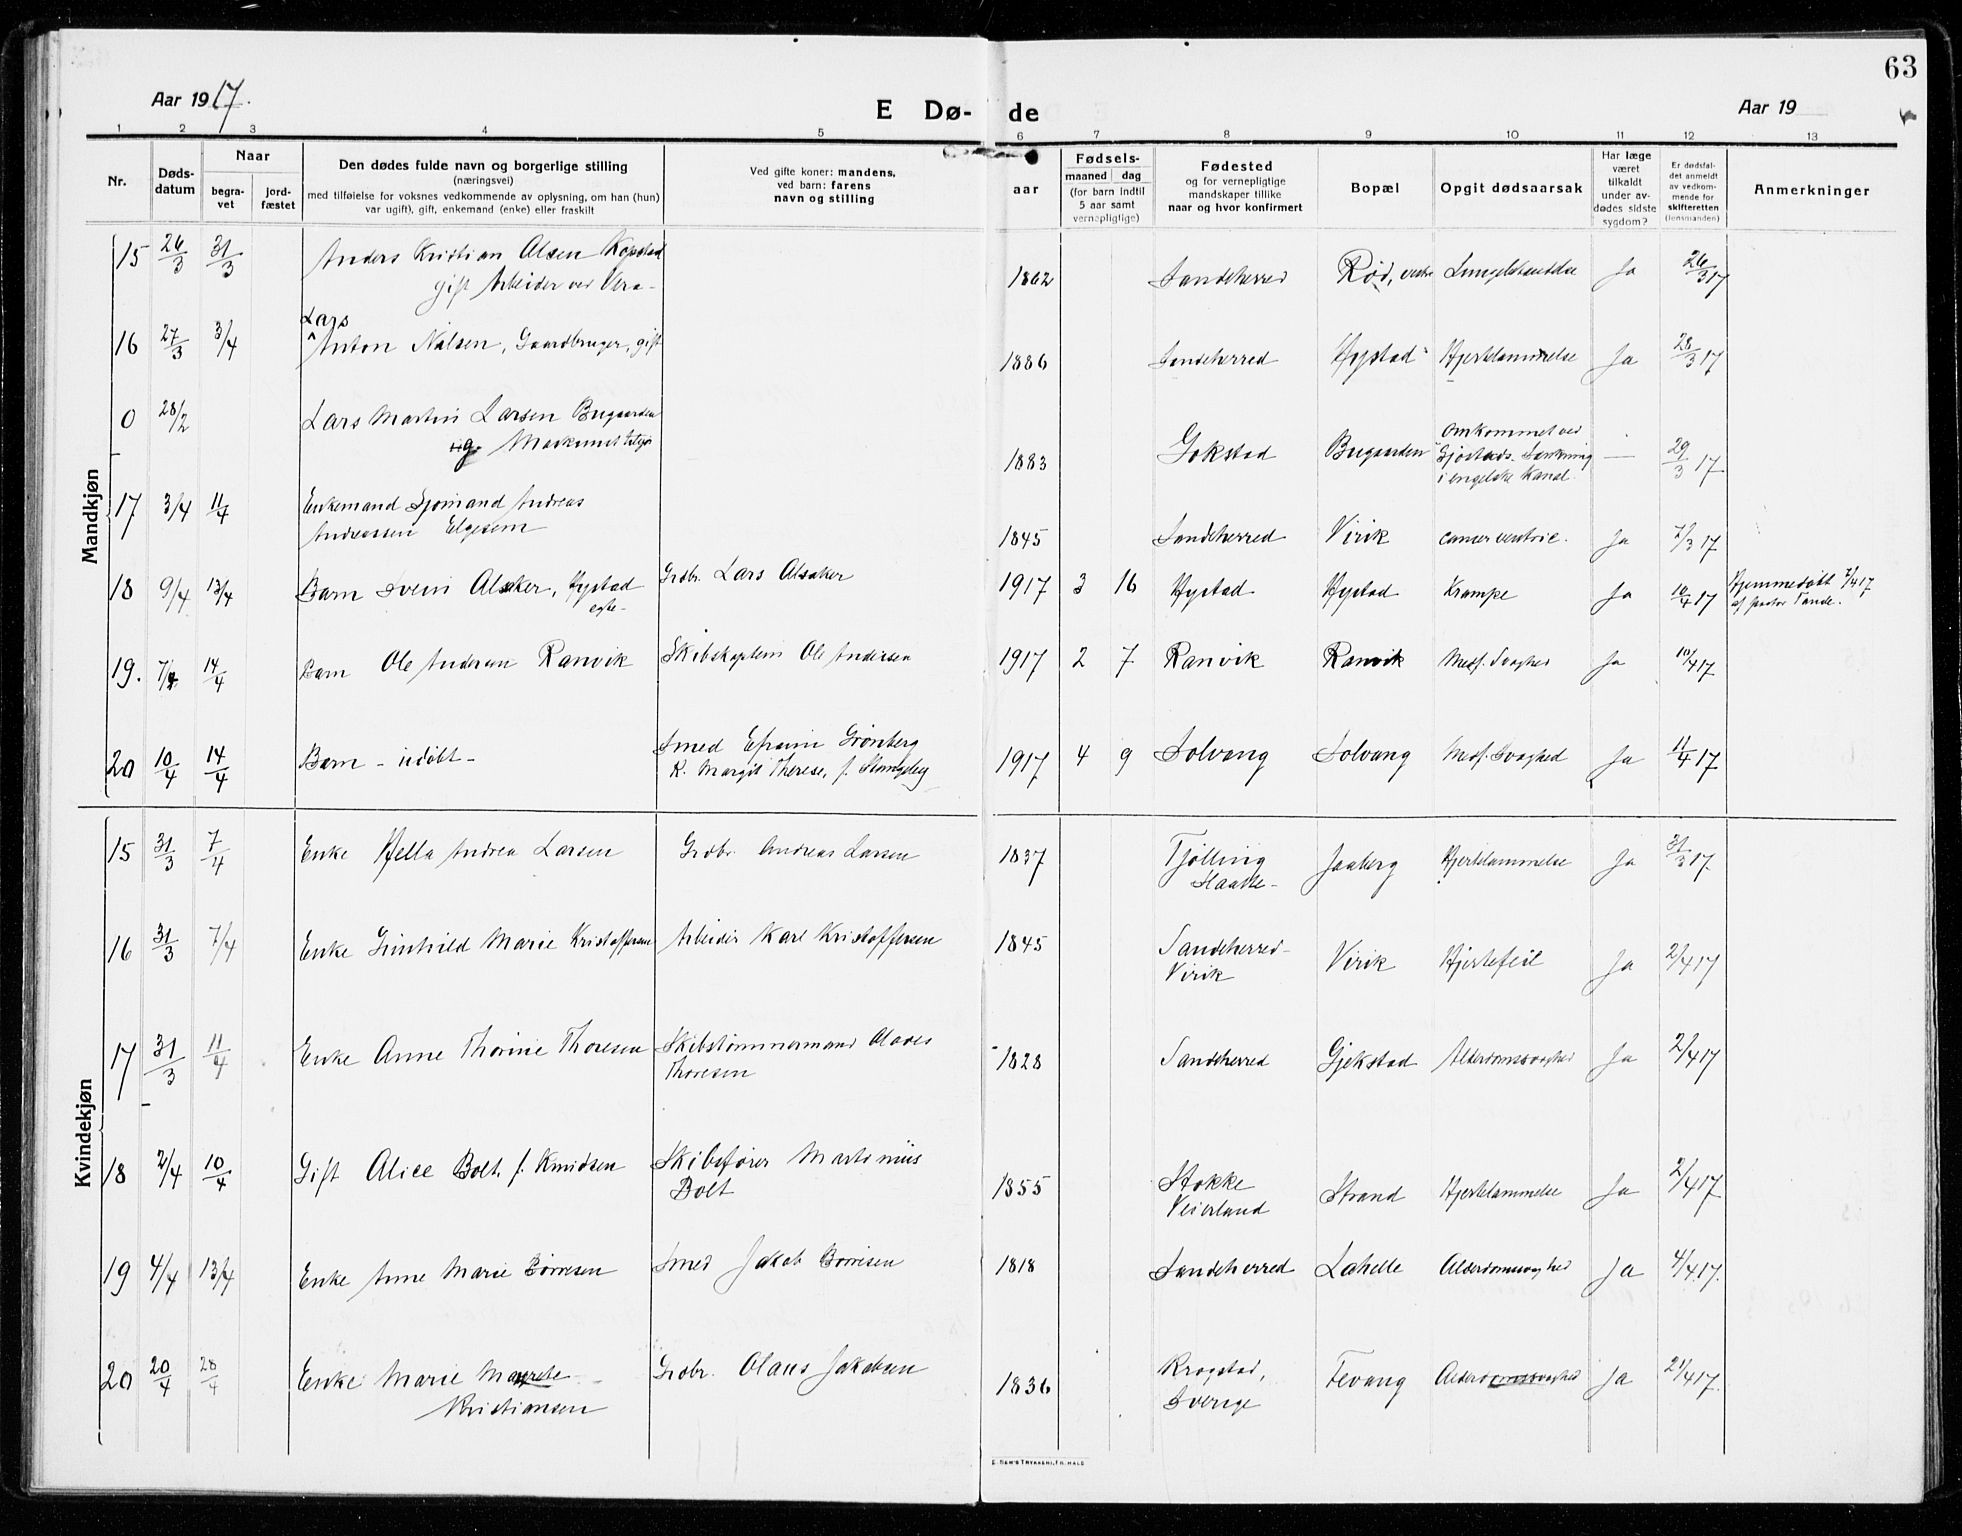 63
Aar 1917.
E Dø- de
Aar 19
1 2 3 4 5 6 7 8 9 10 11 12 13
Nr.
Døds-
datum
Naar
begra-
vet
jord-
fæstet
Den dødes fulde navn og borgerlige stilling
(næringsvei)
med tilføielse for voksnes vedkommende av oplysning, om han (hun)
var ugift), gift, enkemand (enke) eller fraskilt
Ved gifte koner: mandens,
ved barn: farens
navn og stilling
aar
Fødsels-
maaned dag
(for barn indtil
5 aar samt
vernepligtige)
Fødested
og for vernepligtige
mandskaper tillike
naar og hvor konfirmert
Bopæl
Opgit dødsaarsak
Har læge
været
tilkaldt
under av-
dødes sidste
sygdom?
Er dødsfal-
det anmeldt
av vedkom-
mende for
skifteretten
(lensmanden)
Anmerkninger
Mandkjøn
15 26/3 31/3 Anders Kristian Olsen Kopstad 1862 Sandeherred Rød, vestre Ja 26/3 17
gift Arbeider ved Vera-
Lars
16 27/3 3/4 Anton Nilsen, Gaardbruger, gift 1886 Sandeherred Hystad Hjertelammelse Ja 28/3 17
0 28/2 Lars Martin Larsen Bugaarden 1883 Gokstad Bugaarden Omkommet ved
ug. Maskinist
Sænkning — 29/3 17
i engelske Kanal.
17 3/4 11/4 Enkemand Sjømand Andreas
Andreassen Elgesem 1845 Sandeherred Virik cancer ventric. Ja 2/3 17
18 9/4 13/4 Barn Svein Alsaker, Hystad Grdbr. Lars Alsaker 1917 3 16 Hystad Hystad Krampe Ja 10/4 17 Hjemmedøbt 7/4 17
egte- af pastor Tande.
19. 7/4 14/4 Barn Ole Andersen Ranvik Skibskaptein Ole Andersen 1917 2 7 Ranvik Ranvik Medf. Svaghed Ja 10/4 17
20 10/4 14/4 Barn - udøbt - Smed Efraim Grønberg 1917 4 9 Solvang Solvang Medf. Svaghed Ja 11/4 17
K. Margit Therese, f.
Kvindekjøn
15 31/3 7/4 Enke Hella Andrea Larsen Grdbr. Andreas Larsen 1837 Tjølling Jaaberg Hjertelammelse Ja 31/3 17.
Haatte-
16 31/3 7/4 Enke Gunhild Marie Kristoffersen Arbeider Karl Kristoffersen 1845 Sandeherred- Virik Hjertefeil Ja 2/4 17
Virik
17 31/3 11/4 Enke Anne Thorine Thoresen Skibstømmermand Olaves 1828 Sandeherred Gjekstad Alderdomssvaghed Ja 2/4 17
Thoresen
18 2/4 10/4 Gift Alice Bolt, f. Knudsen Skibsfører Martinius 1855 Stokke Strand Hjertelammelse Ja 2/4 17
Bolt Veierland
19 4/4 13/4 Enke Anne Marie Børresen Smed Jakob Børresen 1818 Sandeherred Lahelle Alderdomssvaghed Ja 4/4 17.
20 20/4 28/4 Enke Marie Margrete Grdbr. Olaus Jakobsen 1836 Krogstad, Fevang Alderdomssvaghed Ja 21/4 17.
Kristiansen Sverige